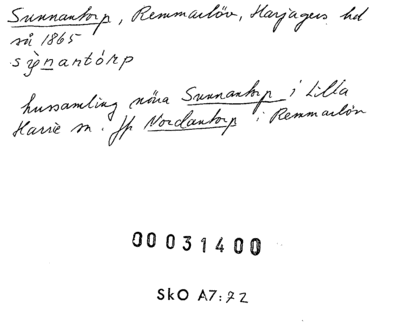 Sunnantorp, Remmarlöv, Harjagers hd
så 1865
sỳnantórp
hussamling nära Sunnantorp i Lilla
Harrie sn. Jfr Nordantorp i Remmarlöv
00031400
SkO A7:72